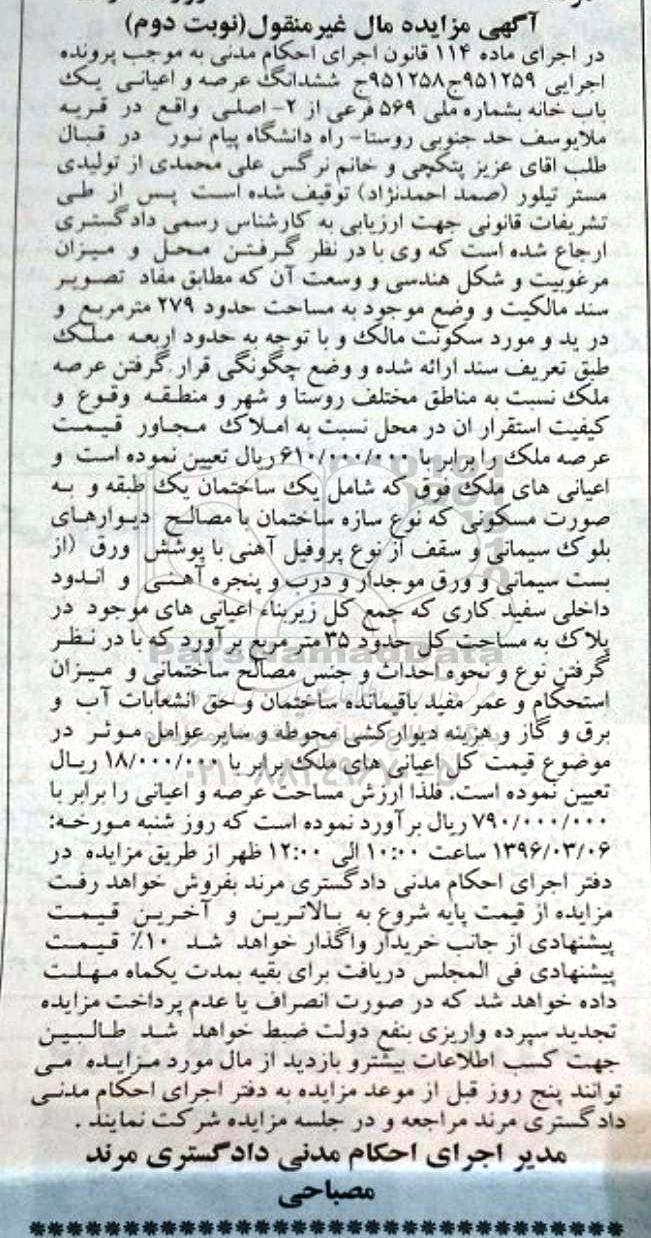 آگهی مزایده مال غیرمنقول(نوبت دوم)
در اجرای ماده ۱۱۴ قانون اجرای احکام مدنی به موجب پرونده
اجرایی ۹۵۱۲۵۹ج۹۵۱۲۵۸ج ششدانگ عرصه و اعیانی یک
باب خانه بشماره ملی ۵۶۹ فرعی از ۲- اصلی واقع در قریه
ملایوسف حد جنوبی روستا- راه دانشگاه پیام نور در قبال
طلب اقای عزیز پتکچی و خانم نرگس علی محمدی از تولیدی
مستر تیلور (صمد احمدنژاد) توقیف شده است پس از طی
تشریفات قانونی جهت ارزیابی به کارشناس رسمی دادگستری
ارجاع شده است که وی با در نظر گرفتن محل و میزان
مرغوبیت و شکل هندسی و وسعت آن که مطابق مفاد تصویر
سند مالکیت و وضع موجود به مساحت حدود ۲۷۹ مترمربع و
در ید و مورد سکونت مالک و با توجه به حدود اربعه ملک
طبق تعریف سند ارائه شده و وضع چگونگی قرار گرفتن عرصه
ملک نسبت به مناطق مختلف روستا و شهر و منطقه وقوع و
کیفیت استقرار ان در محل نسبت به املاک مجاور قیمت
عرصه ملک را برابر با ۶۱۰/۰۰۰/۰۰۰ ریال تعیین نموده است و
اعیانی های ملک فوق که شامل یک ساختمان یک طبقه و به
صورت مسکونی که نوع سازه ساختمان با مصالح دیوارهای
بلوک سیمانی و سقف از نوع پروفیل آهنی با پوشش ورق (از
بست سیمانی و ورق موجدار و درب و پنجره آهنی و اندود
داخلی سفید کاری که جمع کل زیربناء اعیانی های موجود در
پلاک به مساحت کل حدود ۳۵ متر مربع برآورد که با در نظر
گرفتن نوع و نحوه احداث و جنس مصالح ساختمانی و میزان
استحکام و عمر مفید باقیمانده ساختمان و حق انشعابات آب و
برق و گاز و هزینه دیوارکشی محوطه و سایر عوامل موثر در
موضوع قیمت کل اعیانی های ملک برابر با ۱۸/۰۰۰/۰۰۰ ریال
تعیین نموده است. فلذا ارزش مساحت عرصه و اعیانی را برابر با
۷۹۰/۰۰۰/۰۰۰ ریال برآورد نموده است که روز شنبه مورخه:
۱۳۹۶/۰۳/۰۶ ساعت ۱۰:۰۰ الی ۱۲:۰۰ ظهر از طریق مزایده در
دفتر اجرای احکام مدنی دادگستری مرند بفروش خواهد رفت
مزایده از قیمت پایه شروع به بالاترین و آخرین قیمت
پیشنهادی از جانب خریدار واگذار خواهد شد ۱۰٪ قیمت
پیشنهادی فی المجلس دریافت برای بقیه بمدت یکماه مهلت
داده خواهد شد که در صورت انصراف یا عدم پرداخت مزایده
تجدید سپرده واریزی بنفع دولت ضبط خواهد شد طالبین
جهت کسب اطلاعات بیشترو بازدید از مال مورد مزایده می
توانند پنج روز قبل از موعد مزایده به دفتر اجرای احکام مدنی
دادگستری مرند مراجعه و در جلسه مزایده شرکت نمایند .
مدیر اجرای احکام مدنی دادگستری مرند
مصباحی